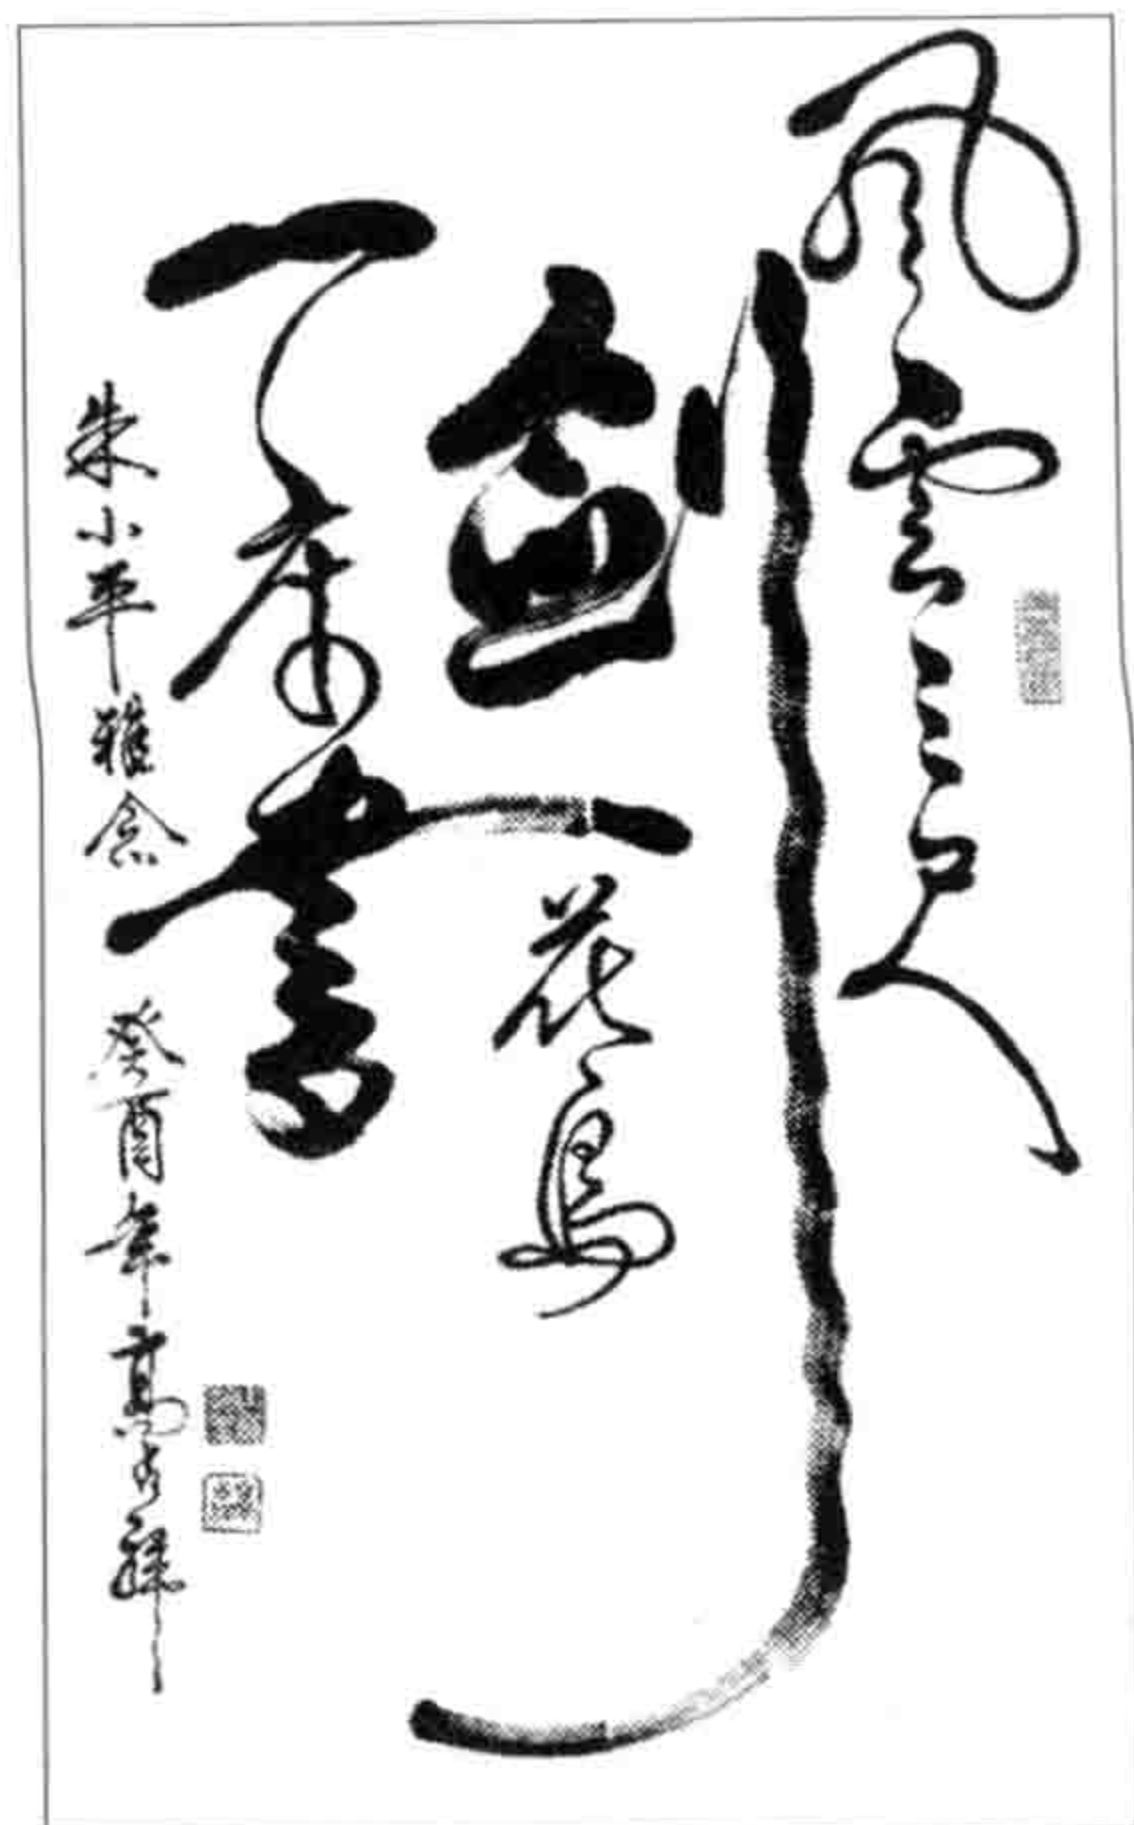 風雲三尺
劍花鳥
一床書
朱小平雅念 癸酉年高占祥